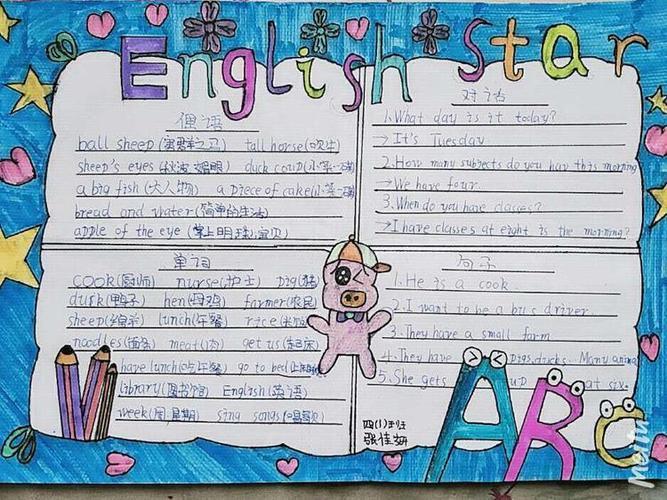 English Star
俚语
ball sheep(害群之马) tall horse(吹牛)
sheep's eyes(秋波,媚眼) duck coup(小菜一碟)
a big fish(大人物) a piece of cake(小菜一碟)
bread and water(简单的生活)
apple of the eye(掌上明珠;宝贝)
对话
1.What day is it today?
→It's Tuesday
2.How many subjects do you hav this morning
→We have four.
3.When do you have classes?
→I have classes at eight is the morning?
单词
cook(厨师) nurse(护士) pig(猪)
duck(鸭子) hen(母鸡) farmer(农民)
sheep(绵羊) lunch(午餐) rice(米饭)
noodles(面条) meat(肉) get us(起床)
have lunch(吃午餐) go to bed
library(图书馆) English(英语)
week(周,星期) sing songs
句子
1.He is a cook
2.I want to be a bus driver
3.They have a small farm
4.They have pigs,ducks. Many anima
5.She gets up at six.
四(1)班
张佳妍
ABC
Meitu